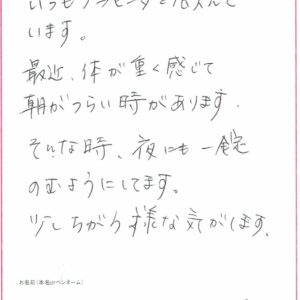 いつもプラセンタを飲んで
います。
最近、体が重く感じて
朝がつらい時があります.
そんな時、夜にも一錠
のむようにしてます。
少しちがう様な気がします.
お名前（本名orペンネーム）